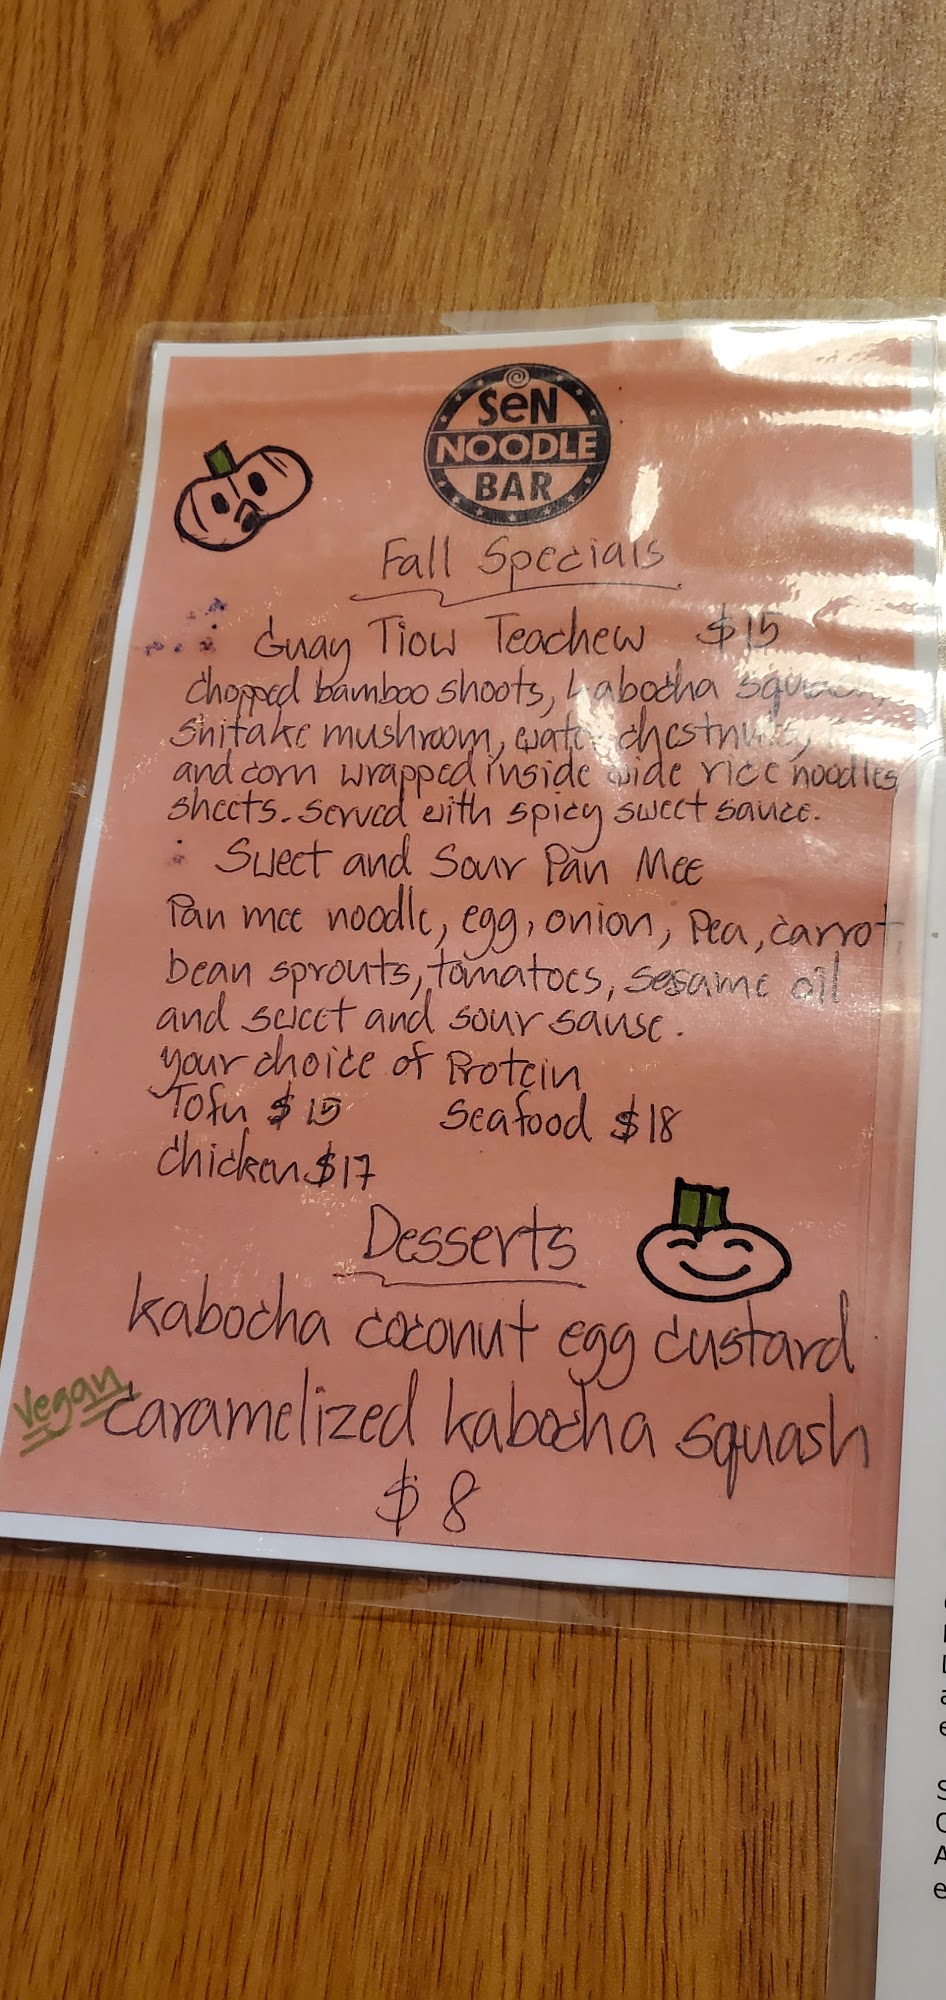 SeN
NOODLE
BAR
Fall Specials
Guay Tiow Teachew $15
chopped bamboo shoots, kabocha squash,
shitake mushroom, water chestnuts,
and corn wrapped inside wide rice noodles
sheets. served with spicy sweet sauce.
Sweet and Sour Pan Mee
Pan mee noodle, egg, onion, Pea, carrot,
bean sprouts, tomatoes, sesame oil
and sweet and sour sause.
your choice of Protein
Tofu $15 Seafood $18
chicken $17
Desserts
kabocha coconut egg custard
Vegan caramelized kabocha squash
$8